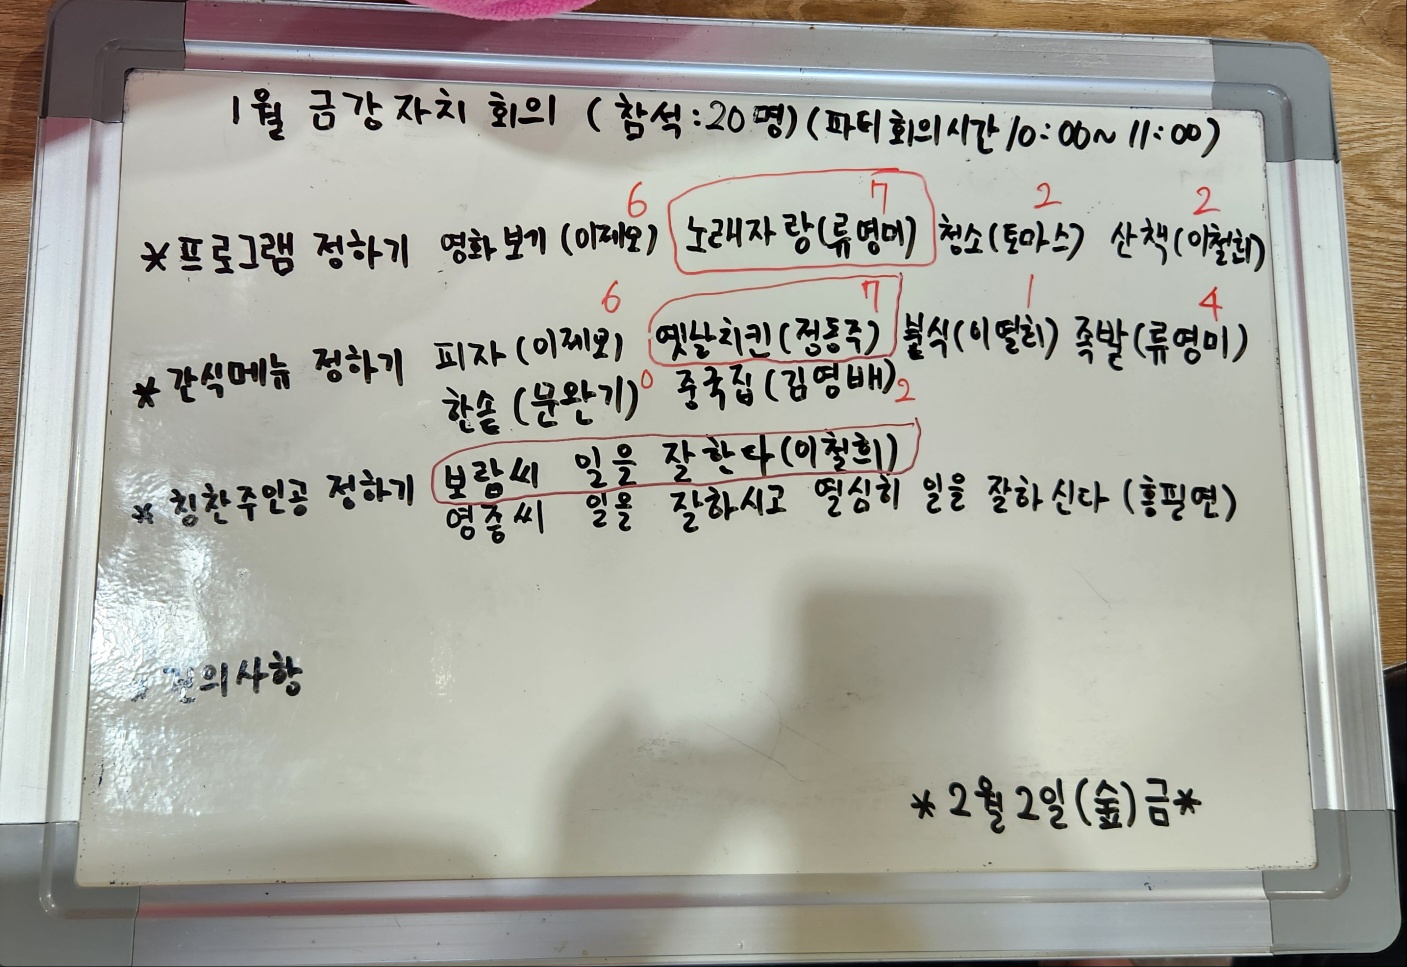 1월 금강자치 회의 (참석:20명)(파티회의시간10:00~11:00)
6 7 2 2
*프로그램 정하기 영화보기(이제오) 노래자랑(류영미) 청소(토마스) 산책(이철희)
6 7 1 4
*간식메뉴 정하기 피자(이제오) 옛날치킨(정동주) 분식(이철희) 족발(류영미)
한솥(문완기)0 중국집(김영배)2
*칭찬주인공 정하기 보람씨 일을 잘한다(이철희)
영중씨 일을 잘하시고 열심히 일을 잘하신다(홍필연)
건의사항
*2월2일(金)금*